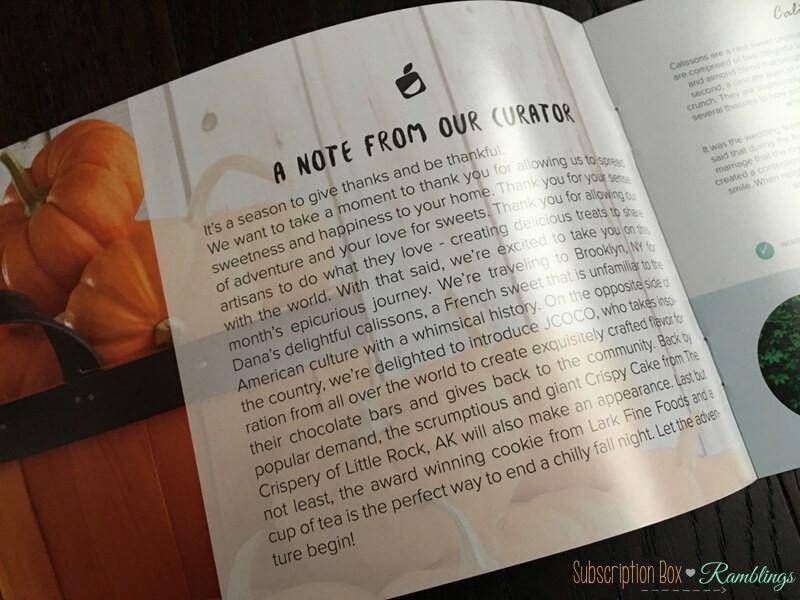 A NOTE FROM OUR CURATOR
It's a season to give thanks and be thankful.
We want to take a moment to thank you for allowing us to spread
sweetness and happiness to your home. Thank you for your sense
of adventure and your love for sweets. Thank you for allowing our
artisans to do what they love - creating delicious treats to share
with the world. With that said, we're excited to take you on this
month's epicurious journey. We're traveling to Brooklyn, NY for
Dana's delightful calissons, a French sweet that is unfamiliar to the
American culture with a whimsical history. On the opposite side of
the country, we're delighted to introduce JCOCO, who takes inspi-
ration from all over the world to create exquisitely crafted flavor for
their chocolate bars and gives back to the community. Back by
popular demand, the scrumptious and giant Crispy Cake from The
Crispery of Little Rock, AK will also make an appearance. Last but
not least, the award winning cookie from Lark Fine Foods and a
cup of tea is the perfect way to end a chilly fall night. Let the adven-
ture begin!
Calissons are a
are comprised of
and almond
second, a
crunch. They are
several theories to how
It was the wedding
said that during the
marriage that the
created a confection
smile. When
Subscription Box Ramblings